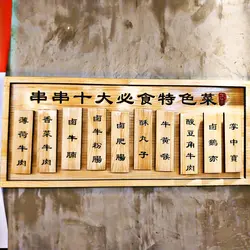 串串十大必食特色菜
薄荷牛肉
香菜牛肉
卤牛腩
卤牛粉腸
卤肥腸
酥丸子
牛黄喉
酸豆角牛肉
卤鹅赤
掌中寶